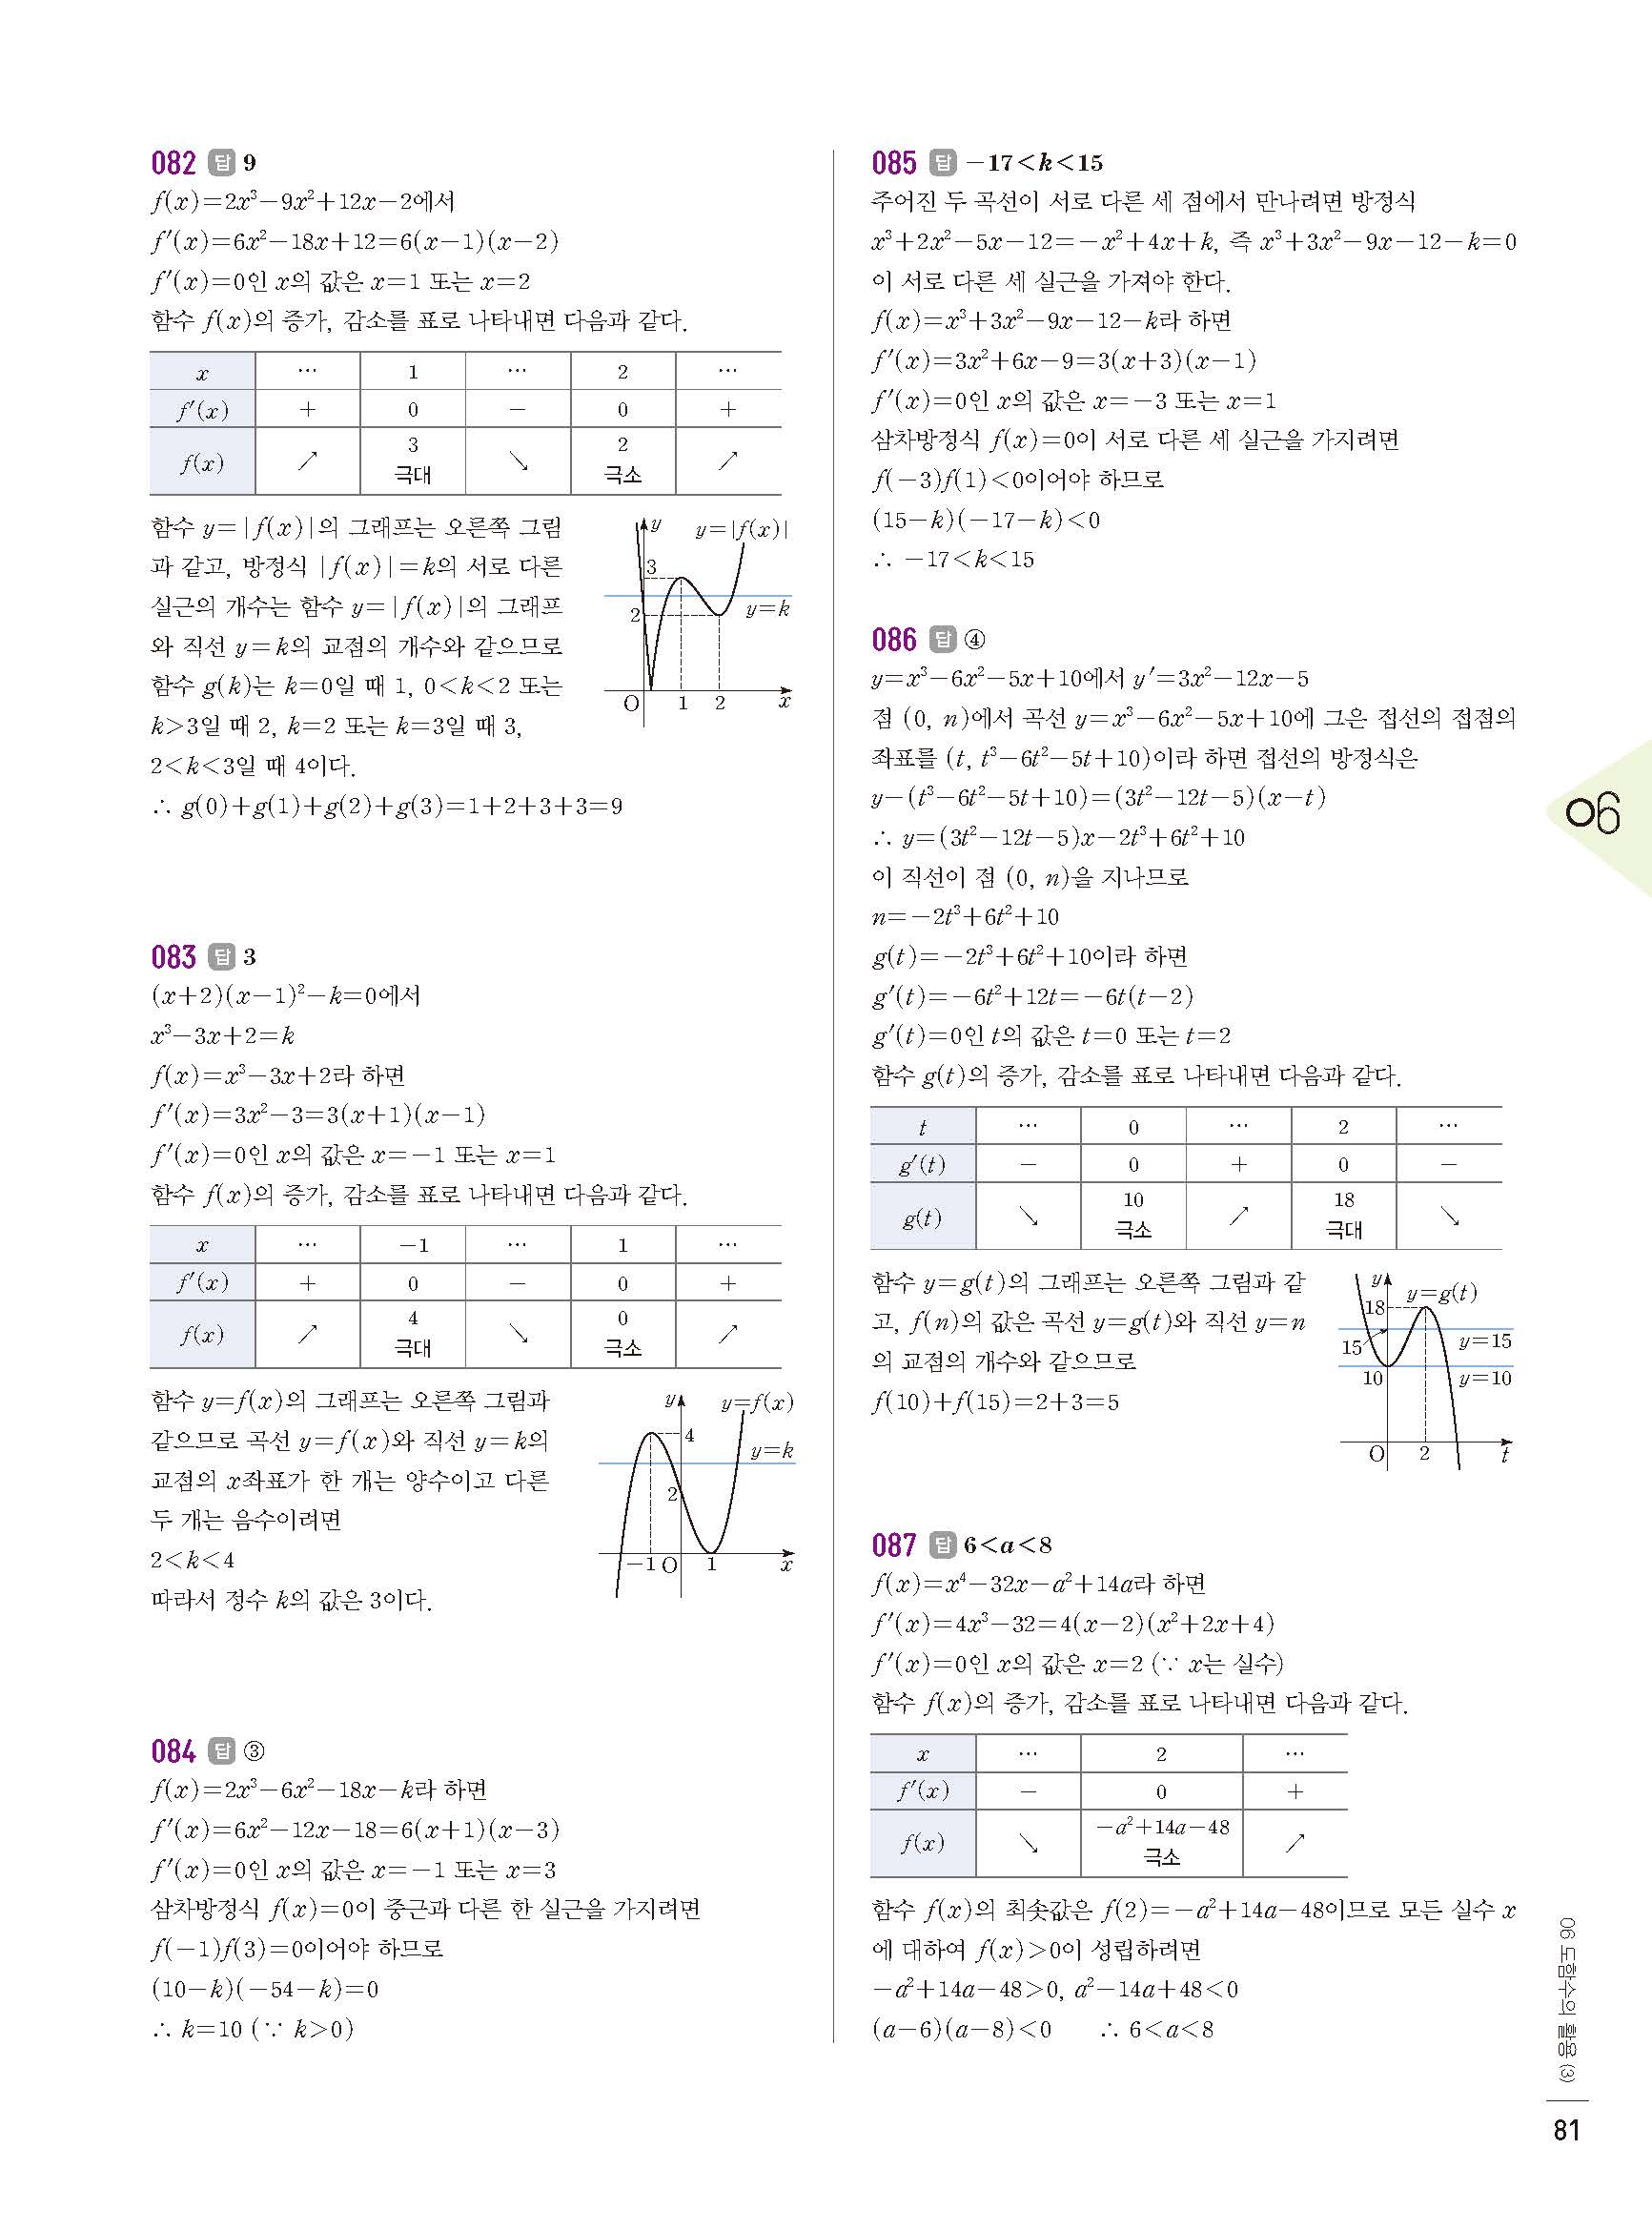 082 답 9
f(x)=2x³-9x²+12x-2에서
f′(x)=6x²-18x+12=6(x-1)(x-2)
f′(x)=0인 x의 값은 x=1 또는 x=2
함수 f(x)의 증가, 감소를 표로 나타내면 다음과 같다.
x … 1 … 2 …
f′(x) + 0 - 0 +
f(x) ↗ 3 극대 ↘ 2 극소 ↗
함수 y=|f(x)|의 그래프는 오른쪽 그림
과 같고, 방정식 |f(x)|=k의 서로 다른
실근의 개수는 함수 y=|f(x)|의 그래프
와 직선 y=k의 교점의 개수와 같으므로
함수 g(k)는 k=0일 때 1, 0<k<2 또는
k>3일 때 2, k=2 또는 k=3일 때 3,
2<k<3일 때 4이다.
y y=|f(x)|
3
2 y=k
O 1 2 x
∴ g(0)+g(1)+g(2)+g(3)=1+2+3+3=9
083 답 3
(x+2)(x-1)²-k=0에서
x³-3x+2=k
f(x)=x³-3x+2라 하면
f′(x)=3x²-3=3(x+1)(x-1)
f′(x)=0인 x의 값은 x=-1 또는 x=1
함수 f(x)의 증가, 감소를 표로 나타내면 다음과 같다.
x … -1 … 1 …
f′(x) + 0 - 0 +
f(x) ↗ 4 극대 ↘ 0 극소 ↗
함수 y=f(x)의 그래프는 오른쪽 그림과
같으므로 곡선 y=f(x)와 직선 y=k의
교점의 x좌표가 한 개는 양수이고 다른
두 개는 음수이려면
2<k<4
따라서 정수 k의 값은 3이다.
y y=f(x)
4
y=k
2
-1 O 1 x
084 답 ③
f(x)=2x³-6x²-18x-k라 하면
f′(x)=6x²-12x-18=6(x+1)(x-3)
f′(x)=0인 x의 값은 x=-1 또는 x=3
삼차방정식 f(x)=0이 중근과 다른 한 실근을 가지려면
f(-1)f(3)=0이어야 하므로
(10-k)(-54-k)=0
∴ k=10 (∵ k>0)
085 답 -17<k<15
주어진 두 곡선이 서로 다른 세 점에서 만나려면 방정식
x³+2x²-5x-12=-x²+4x+k, 즉 x³+3x²-9x-12-k=0
이 서로 다른 세 실근을 가져야 한다.
f(x)=x³+3x²-9x-12-k라 하면
f′(x)=3x²+6x-9=3(x+3)(x-1)
f′(x)=0인 x의 값은 x=-3 또는 x=1
삼차방정식 f(x)=0이 서로 다른 세 실근을 가지려면
f(-3)f(1)<0이어야 하므로
(15-k)(-17-k)<0
∴ -17<k<15
086 답 ④
y=x³-6x²-5x+10에서 y′=3x²-12x-5
점 (0, n)에서 곡선 y=x³-6x²-5x+10에 그은 접선의 접점의
좌표를 (t, t³-6t²-5t+10)이라 하면 접선의 방정식은
y-(t³-6t²-5t+10)=(3t²-12t-5)(x-t)
∴ y=(3t²-12t-5)x-2t³+6t²+10
이 직선이 점 (0, n)을 지나므로
n=-2t³+6t²+10
g(t)=-2t³+6t²+10이라 하면
g′(t)=-6t²+12t=-6t(t-2)
g′(t)=0인 t의 값은 t=0 또는 t=2
함수 g(t)의 증가, 감소를 표로 나타내면 다음과 같다.
t … 0 … 2 …
g′(t) - 0 + 0 -
g(t) ↘ 10 극소 ↗ 18 극대 ↘
함수 y=g(t)의 그래프는 오른쪽 그림과 같
고, f(n)의 값은 곡선 y=g(t)와 직선 y=n
의 교점의 개수와 같으므로
f(10)+f(15)=2+3=5
y y=g(t)
18
15 y=15
10 y=10
O 2 t
087 답 6<a<8
f(x)=x⁴-32x-a²+14a라 하면
f′(x)=4x³-32=4(x-2)(x²+2x+4)
f′(x)=0인 x의 값은 x=2 (∵ x는 실수)
함수 f(x)의 증가, 감소를 표로 나타내면 다음과 같다.
x … 2 …
f′(x) - 0 +
f(x) ↘ -a²+14a-48 극소 ↗
함수 f(x)의 최솟값은 f(2)=-a²+14a-48이므로 모든 실수 x
에 대하여 f(x)>0이 성립하려면
-a²+14a-48>0, a²-14a+48<0
(a-6)(a-8)<0 ∴ 6<a<8
06
06 도함수의 활용 (3)
81